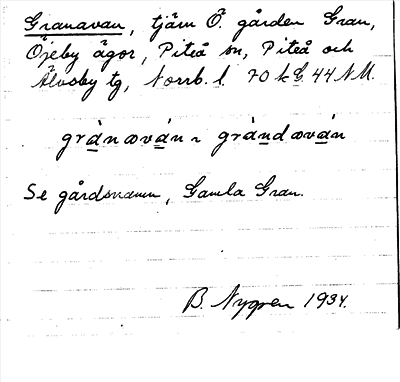 Granavan, tjärn Ö. gården Gran,
Öjeby ägor, Piteå sn, Piteå och
Älvsby tg, Norrb. l 70 k G 44 NM.
grànaván ~ gràndaván
Se gårdsnamn, Gamla Gran.
B. Nygren 1934.